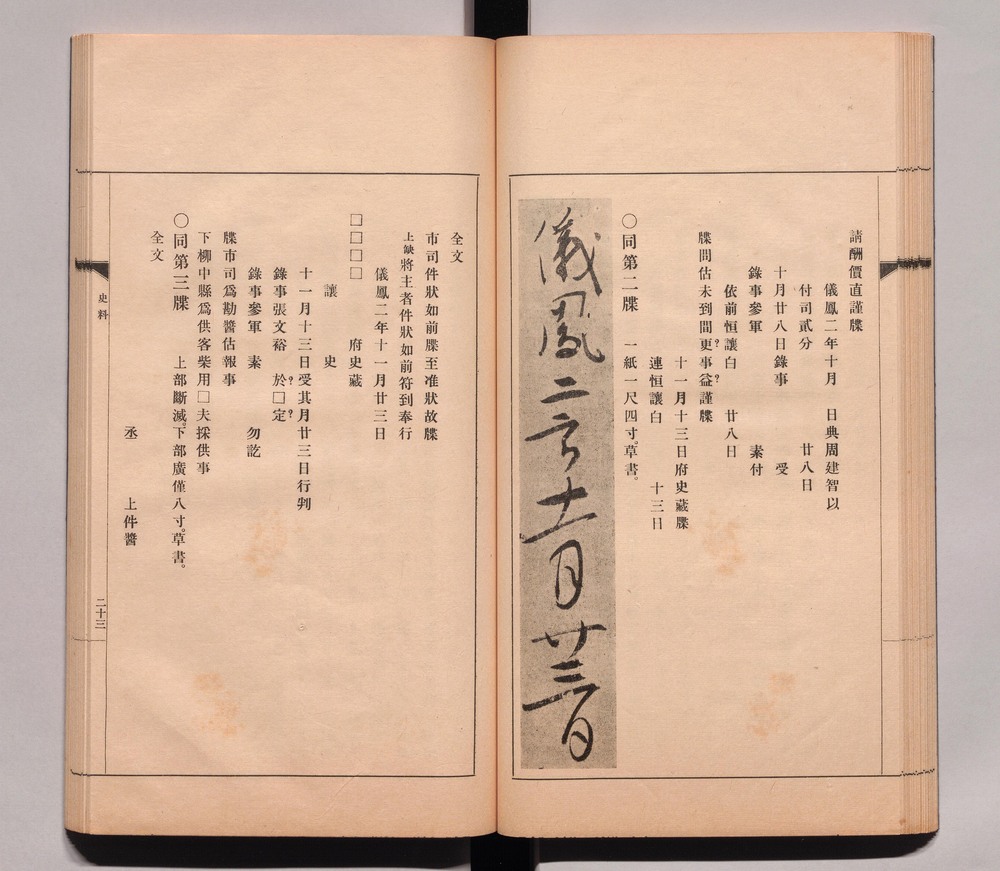 請酬價直謹牒
儀鳳二年十月　日典周建智以
付司貳分　廿八日
十月廿八日錄事　受
錄事參軍　素付
依前恒讓白　廿八日
牒問估未到間更?事益?謹牒
十一月十三日府史藏牒
連恒讓白　十三日
○同第二牒　一紙一尺四寸。草書。
儀鳳二年十一月廿三日
全文
市司件狀如前牒至准狀故牒
上缺將主者件狀如前符到奉行
儀鳳二年十一月廿三日
□□□□　府史藏
讓　史
十一月十三日受其月廿三日行判
錄事張文裕　於?□定?
錄事參軍　素　勿訖
牒市司爲勘醬估報事
下柳中縣爲供客柴用□夫採供事
○同第三牒　上部斷滅。下部廣僅八寸。草書。
全文
丞　上件醬
史料
二十三